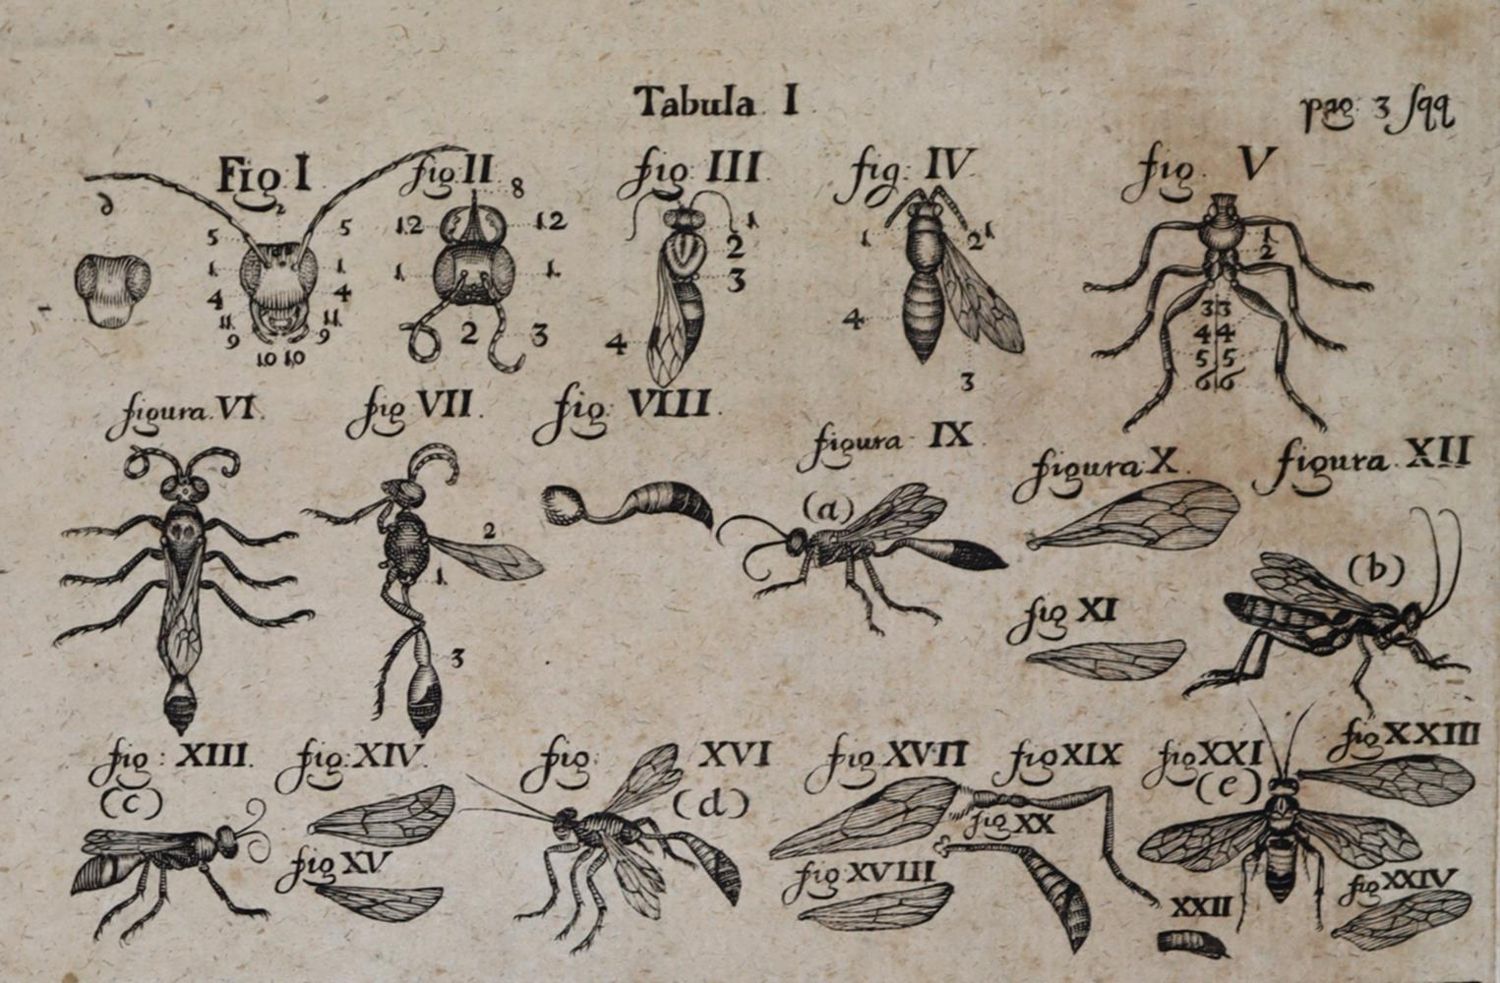 Tabula I
pag: 3 sqq
Fig I
2
5 5
1 1
4 4
11 11
9 9
10 10
fig II
8
12 12
1 1
2 3
fig: III
1
2
3
4
fig: IV
1 2 1
4
3
fig. V
1
2
3 3
4 4
5 5
6 6
figura VI.
fig VII.
2
1
3
fig: VIII.
figura IX
(a)
figura X.
fig XI
figura XII
(b)
fig: XIII.
(c)
fig: XIV.
fig XV
fig: XVI
(d)
fig XVII
fig XVIII
fig XIX
fig XX
fig XXI
(e)
XXII
fig XXIII
fig XXIV